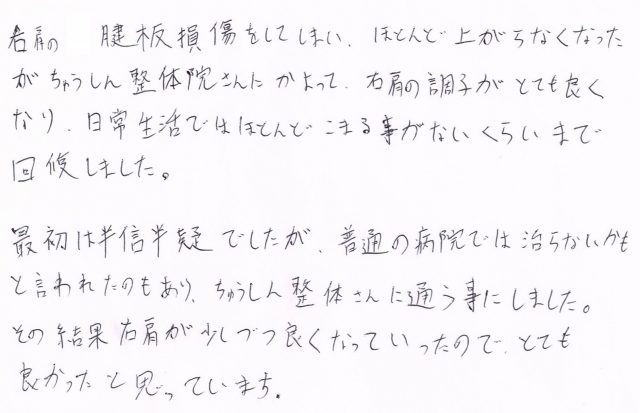 右肩の 腱板損傷をしてしまい、ほとんど上がらなくなった
がちゅうしん整体院さんにかよって、右肩の調子がとても良く
なり、日常生活ではほとんどこまる事がないくらいまで
回復しました。
最初は半信半疑でしたが、普通の病院では治らないかも
と言われたのもあり、ちゅうしん整体さんに通う事にしました。
その結果右肩が少しづつ良くなっていったので、とても
良かったと思っています。